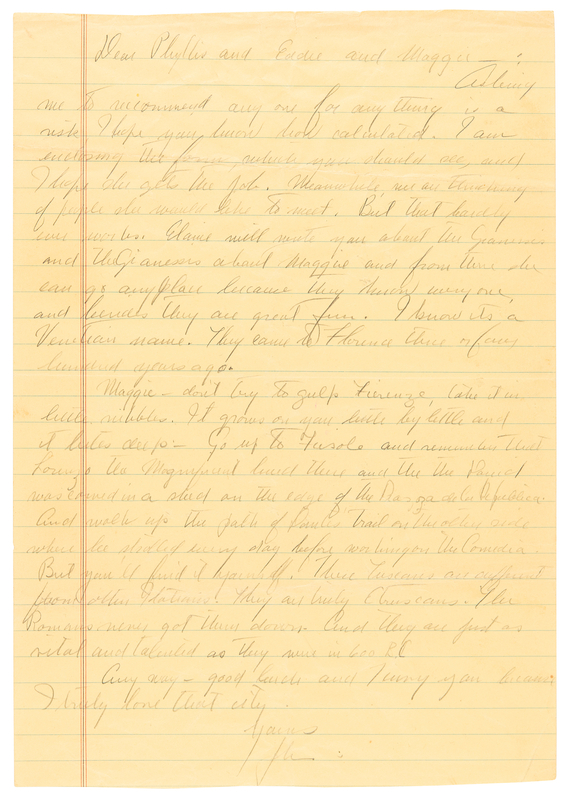 Dear Phyllis and Eddie and Maggie — :
Asking
me to recommend any one for any thing is a
risk I hope you know how calculated. I am
enclosing the form, which you should see, and
I hope she gets the job. Meanwhile, we are thinking
of people she would like to meet. But that hardly
ever works. Elaine will write you about the
and the about Maggie and from there she
can go anyplace because they know everyone,
and besides they are great fun. I know its a
Venetian name. They came to Florence three or four
hundred years ago.
Maggie — don't try to gulp Firenze, take it in
little nibbles. It grows on you little by little and
it bites deep:— Go up to Fiesole and remember that
Lorenzo the Magnificent lived there and the the David
was carved in a shed on the edge of the Piazza de la Republica.
And walk up the path of trail on the other side
where he strolled every day before working on the Comedia.
But you'll find it yourself. These Tuscans are different
from other Italians. They are truly Etruscans. The
Romans never got them down. And they are just as
vital and talented as they were in 600 B.C
Any way — good luck and I envy you because
I truly love that city.
Yours